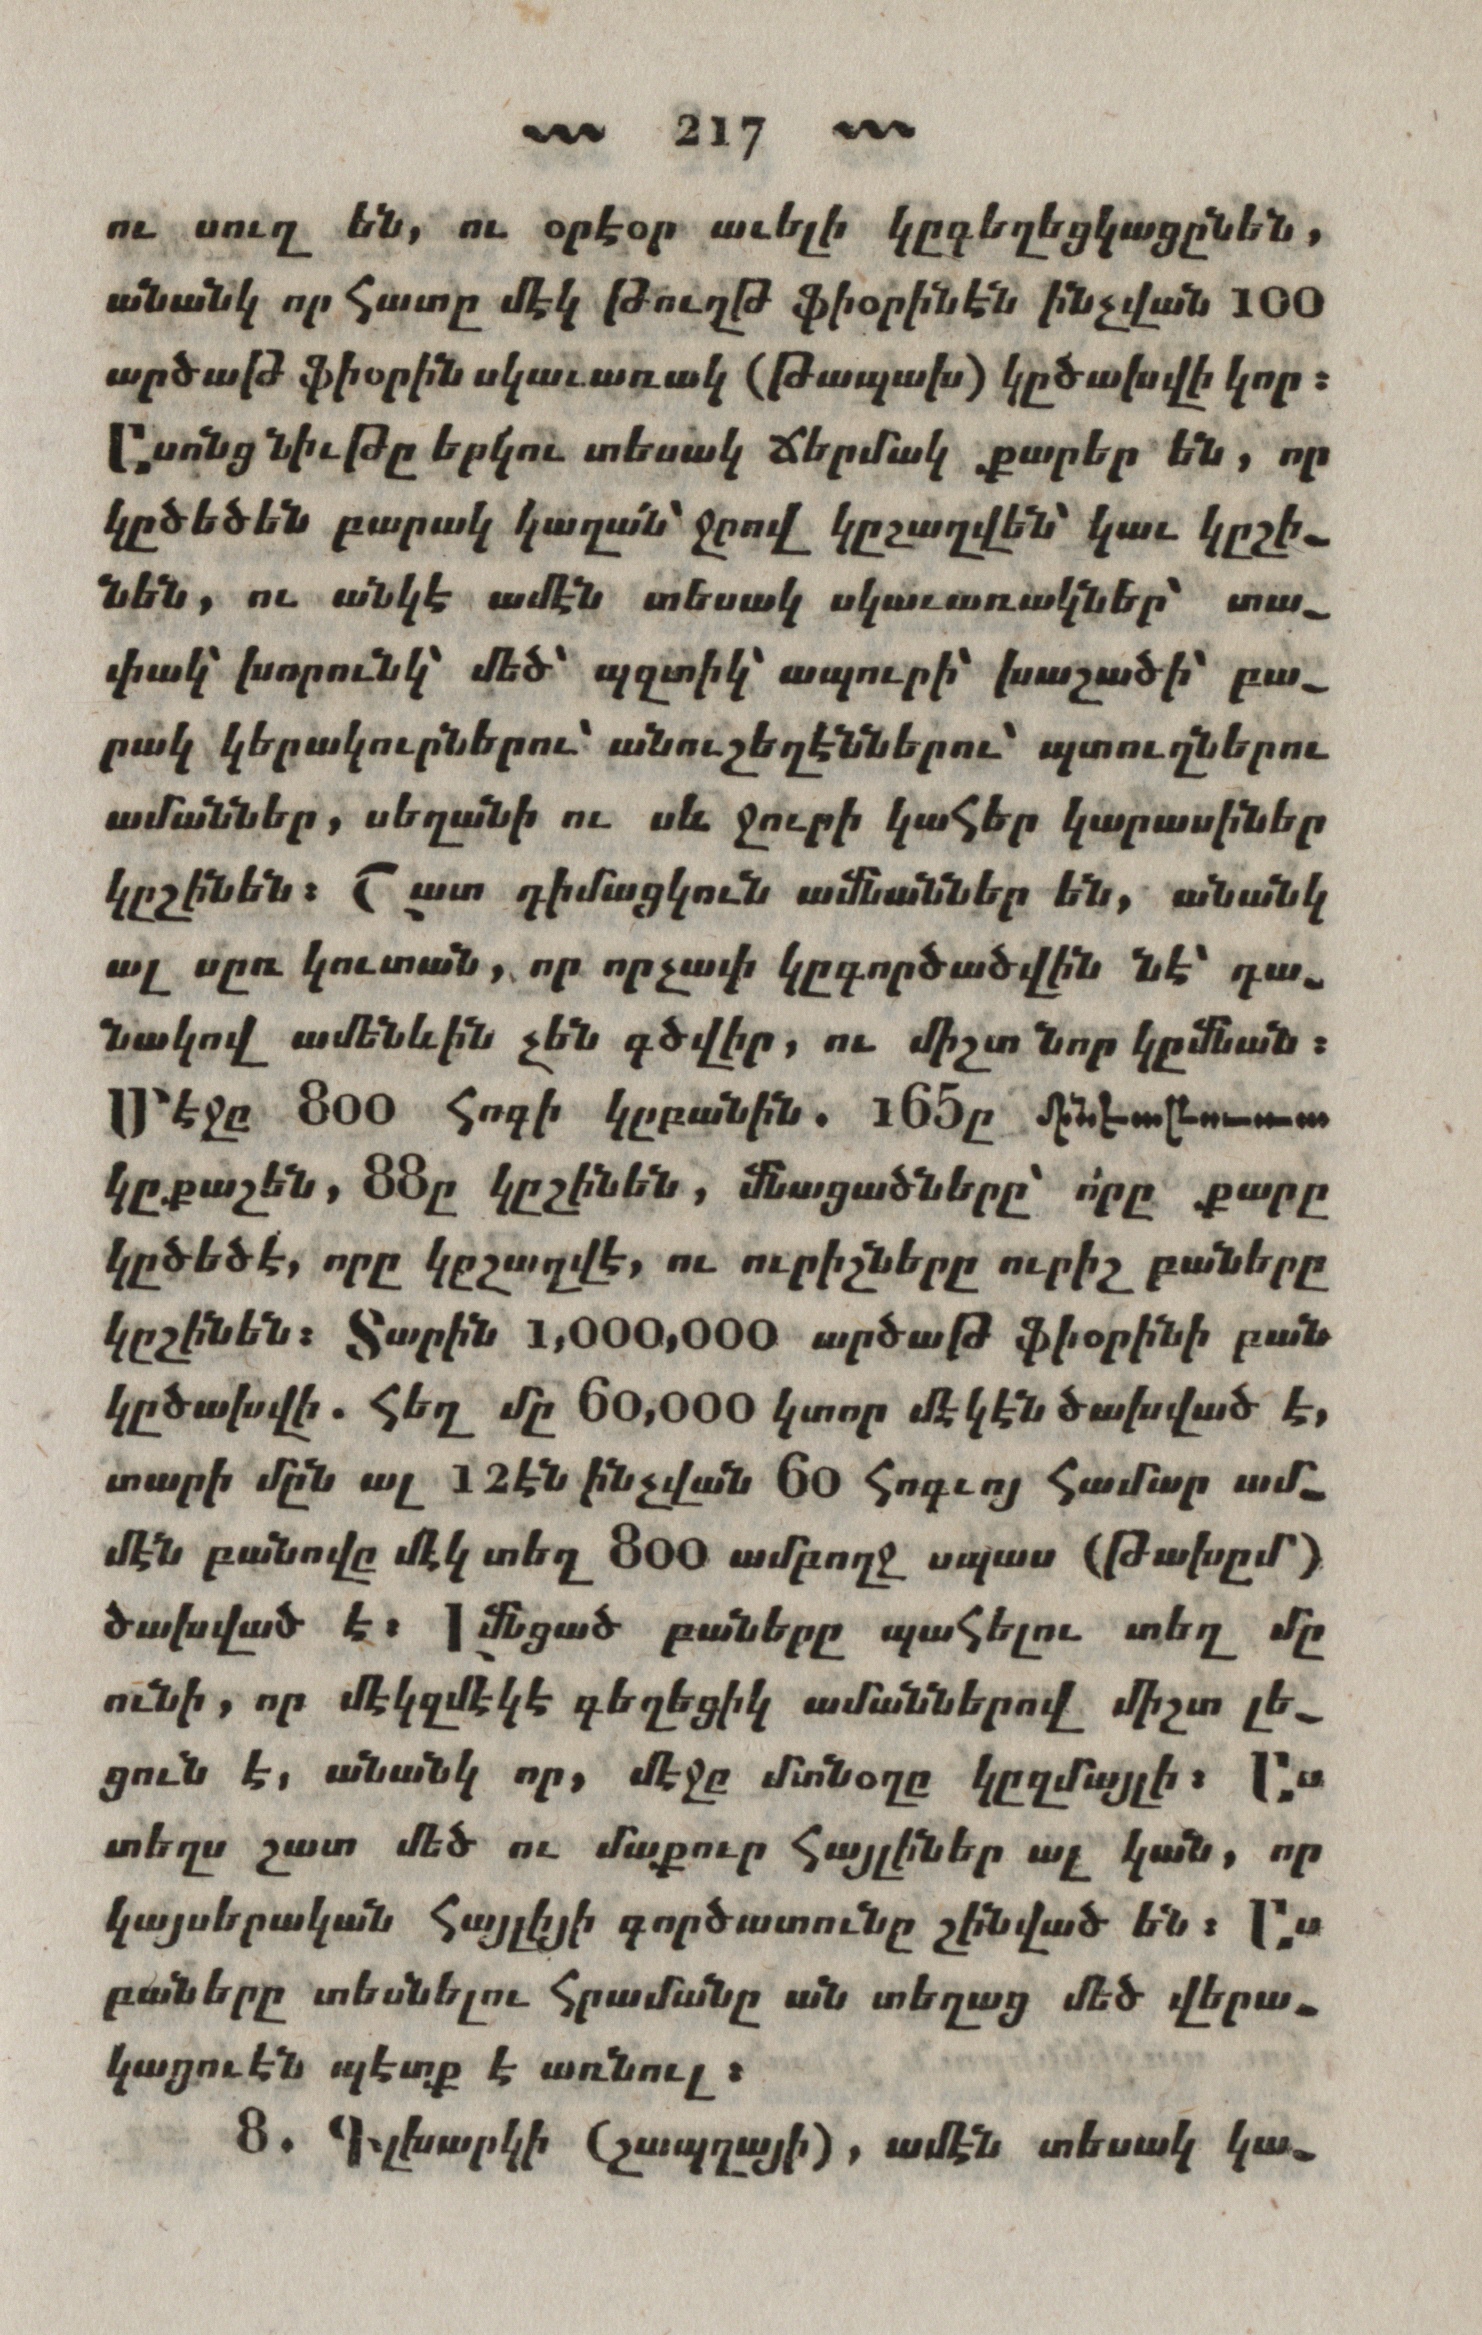 217
ու սուղ են, ու օրէօր աւելի կըգեղեցկացընեն,
անանկ որ հատը մէկ թուղթ ֆիօրինէն ինչվան 100
արծաթ ֆիօրին սկաւառակ (թապախ) կըծախվի կոր։
Ըսոնց նիւթը երկու տեսակ ճերմակ քարեր են, որ
կըծեծեն բարակ կաղա՛ն՝ ջրով կըշաղվեն՝ կաւ կըշի֊
նեն, ու անկէ ամէն տեսակ սկաւառակներ՝ տա֊
փակ՝ խորունկ՝ մեծ՝ պզտիկ՝ ապուրի՝ խաշածի՝ բա֊
րակ կերակուրներու՝ անուշեղէններու՝ պտուղներու
ամաններ, սեղանի ու սև ջուրի կահեր կարասիներ
կըշինեն։ Շատ դիմացկուն ամաններ են, անանկ
ալ սըռ կուտան, որ որչափ կըգործածվին նէ՝ դա֊
նակով ամենևին չեն գծվիր, ու միշտ նոր կըմնան։
Մէջը 800 հոգի կըբանին. 165ը
կըքաշեն, 88ը կըշինեն, մնացածները՝ ո՛րը քարը
կըծեծէ, որը կըշաղվէ, ու ուրիշները ուրիշ բաները
կըշինեն։ Տարին 1,000,000 արծաթ ֆիօրինի բան
կըծախվի. հեղ մը 60,000 կտոր մէկէն ծախված է,
տարի մըն ալ 12էն ինչվան 60 հոգւոյ համար ամ֊
մէն բանովը մէկ տեղ 800 ամբողջ սպաս (թախըմ)
ծախված է։ Լմնցած բաները պահելու տեղ մը
ունի, որ մէկզմէկէ գեղեցիկ ամաններով միշտ լե֊
ցուն է, անանկ որ, մէջը մտնօղը կըզմայլի։ Ըս
տեղս շատ մեծ ու մաքուր հայլիներ ալ կան, որ
կայսերական հայլիյի գործատունը շինված են։ Ըս
բաները տեսնելու հրամանը ան տեղաց մեծ վերա֊
կացուէն պէտք է առնուլ։
8. Գլխարկի (շապղայի), ամէն տեսակ կա֊